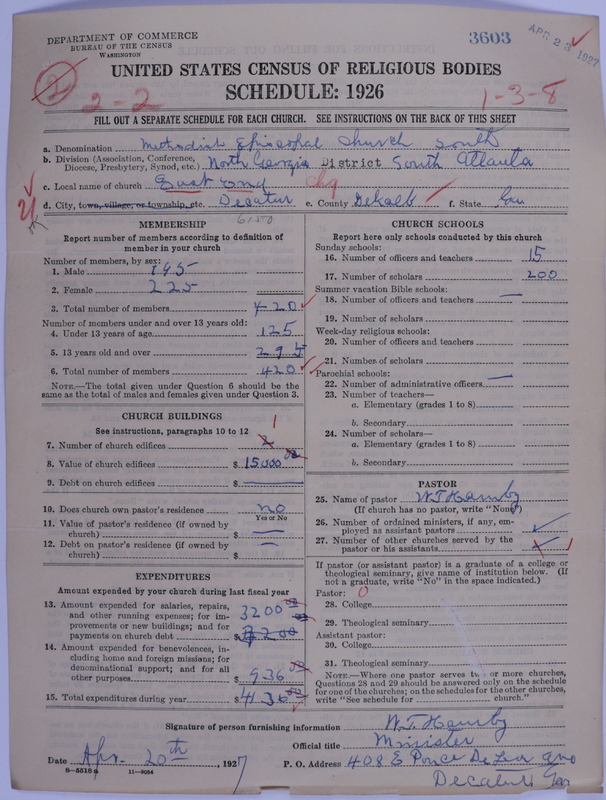 DEPARTMENT OF COMMERCE
BUREAU OF THE CENSUS
WASHINGTON
3603
APR 23 1927
UNITED STATES CENSUS OF RELIGIOUS BODIES
SCHEDULE: 1926
2-2
1-3-8
FILL OUT A SEPARATE SCHEDULE FOR EACH CHURCH. SEE INSTRUCTIONS ON THE BACK OF THIS SHEET
a. Denomination Methodist Episcopal Church South
b. Division (Association, Conference, Diocese, Presbytery, Synod, etc.) North Georgia District South Atlanta
c. Local name of church East End chg
d. City, town, village, or township, etc. Decatur e. County DeKalb f. State Ga
MEMBERSHIP
Report number of members according to definition of member in your church
Number of members, by sex:
1. Male 195
2. Female 225
3. Total number of members 420
Number of members under and over 13 years old:
4. Under 13 years of age 125
5. 13 years old and over 295
6. Total number of members 420
NOTE.—The total given under Question 6 should be the same as the total of males and females given under Question 3.
CHURCH BUILDINGS
See instructions, paragraphs 10 to 12
7. Number of church edifices 1
8. Value of church edifices $ 15000 00
9. Debt on church edifices $
10. Does church own pastor's residence no
Yes or No
11. Value of pastor's residence (if owned by church) $
12. Debt on pastor's residence (if owned by church) $
EXPENDITURES
Amount expended by your church during last fiscal year
13. Amount expended for salaries, repairs, and other running expenses; for improvements or new buildings; and for payments on church debt $ 3200 00
14. Amount expended for benevolences, including home and foreign missions; for denominational support; and for all other purposes $ 936 00
15. Total expenditures during year $ 4136 00
CHURCH SCHOOLS
Report here only schools conducted by this church
Sunday schools:
16. Number of officers and teachers 15
17. Number of scholars 200
Summer vacation Bible schools:
18. Number of officers and teachers —
19. Number of scholars
Week-day religious schools:
20. Number of officers and teachers
21. Number of scholars
Parochial schools:
22. Number of administrative officers —
23. Number of teachers—
a. Elementary (grades 1 to 8)
b. Secondary
24. Number of scholars—
a. Elementary (grades 1 to 8)
b. Secondary
PASTOR
25. Name of pastor W T Hamby
(If church has no pastor, write "None")
26. Number of ordained ministers, if any, employed as assistant pastors
27. Number of other churches served by the pastor or his assistants 1
If pastor (or assistant pastor) is a graduate of a college or theological seminary, give name of institution below. (If not a graduate, write "No" in the space indicated.)
Pastor: 0
28. College
29. Theological seminary
Assistant pastor:
30. College
31. Theological seminary
NOTE.—Where one pastor serves two or more churches, Questions 28 and 29 should be answered only on the schedule for one of the churches; on the schedules for the other churches, write "See schedule for church."
Signature of person furnishing information W. T. Hamby
Official title Minister
Date Apr. 20th, 1927 P. O. Address 408 E Ponce De Leon Ave
Decatur Ga
8-5518a 11-9084